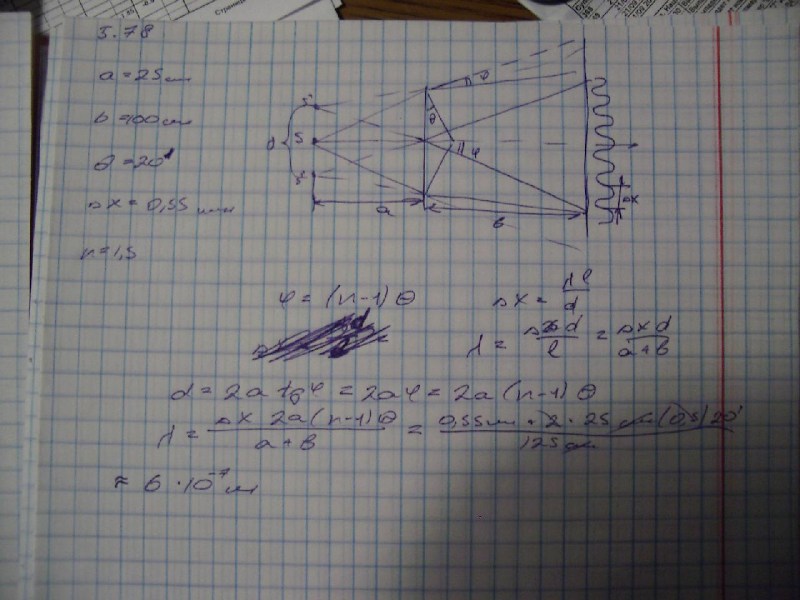 5.78
a = 25 см
b = 100 см
θ = 20'
Δx = 0,55 мм
n = 1,5
S'
d S
S''
θ
φ
φ
a
b
Δx
φ = (n-1) θ
Δx = λl/d
λ = Δx d / l = Δx d / a+b
d = 2a tg φ = 2aφ = 2a (n-1) θ
λ = Δx 2a (n-1) θ / a+b = 0,55 мм · 2 · 25 см (0,5) 20' / 125 см
≈ 6 · 10⁻⁷ м